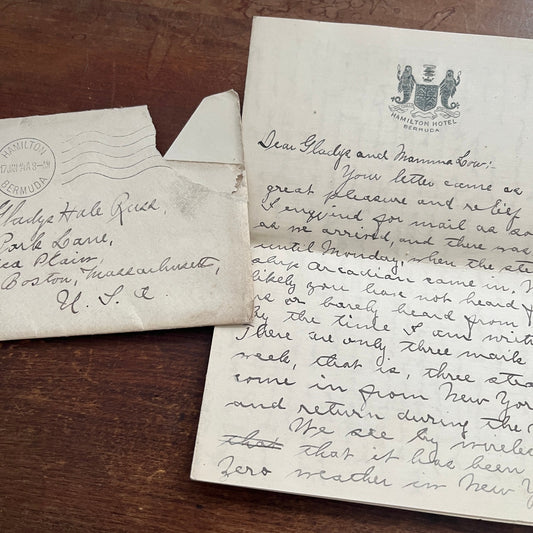 HAMILTON
BERMUDA
Gladys Hale Russ,
Park Lane,
ica Plain,
Boston, Massachusetts,
U. S. A.
HAMILTON HOTEL
BERMUDA
Dear Gladys and Mamma Low:-
Your letter came as
great pleasure and relief
I enquired for mail as so
as we arrived, and there was
until Monday, when the ste
ship Arcadian came in.
likely you have not heard f
us or barely heard from
by the time I am writ
There are only three mail
week, that is, three stea
come in from New York
and return during the
We see by wireless
that that it has been
Zero weather in New Y